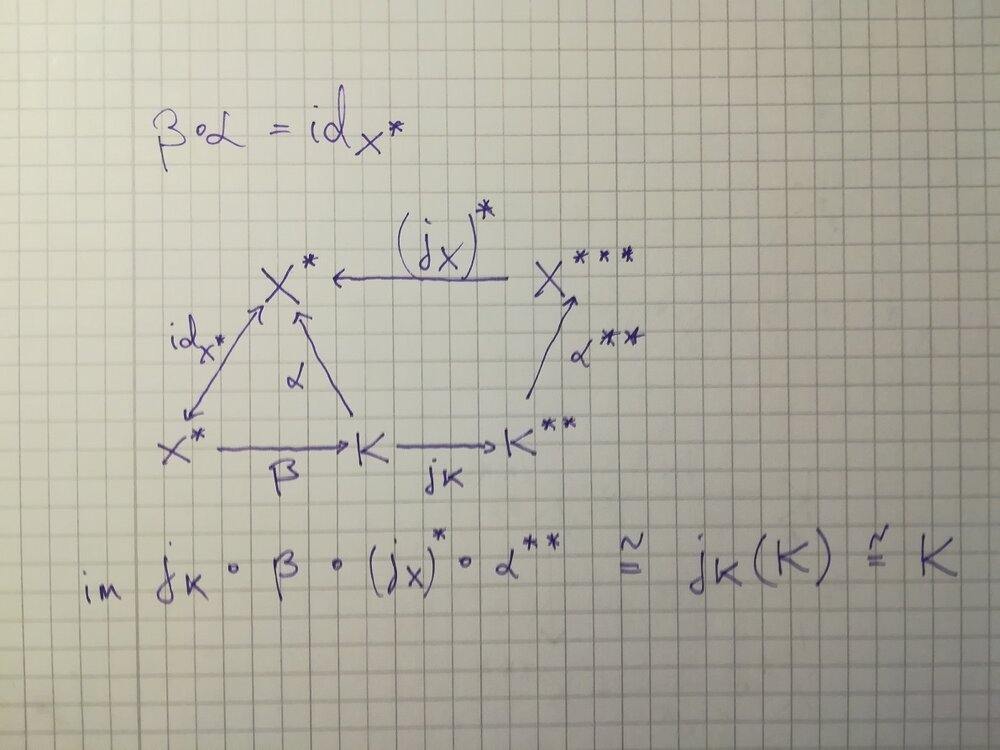 β∘α = id_X*
(j_X)*
X* X***
id_X* α α**
X* K K**
β j_K
im j_K ∘ β ∘ (j_X)* ∘ α** ≅ j_K(K) ≅ K